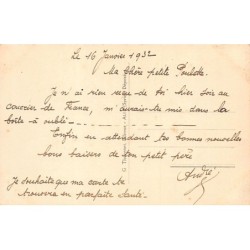 Le 16 Janvier 1932
Ma chère petite Poulette
Je n'ai rien reçu de toi hier soir au
courrier de France, m'aurais-tu mis dans la
boîte à oubli
Enfin en attendant tes bonnes nouvelles
bons baisers de ton petit père
André
Je souhaite que ma carte te
trouvera en parfaite santé.